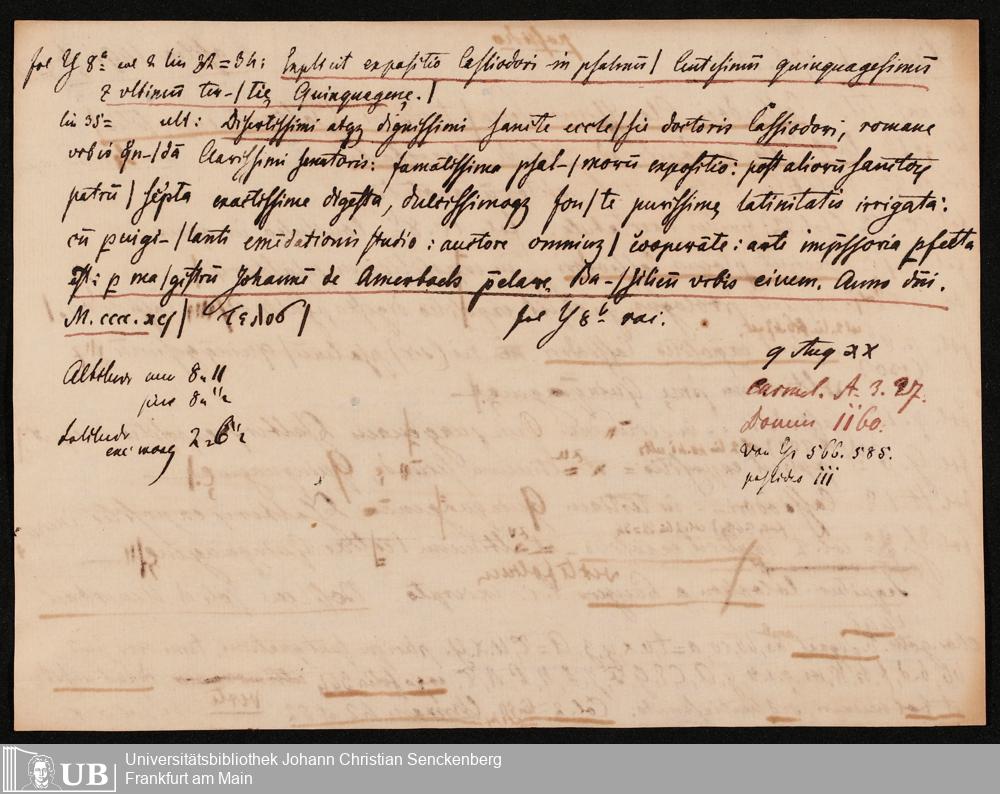 fol Y 8a col 2 lin 32=34: Explicit expositio Cassiodori in psalmũ / Centesimũ quinquagesimũ
⁊ vltimũ ter-/tię Quinquagenę. /
lin 35= ult: Disertissimi atqꝫ dignissimi sancte eccle/sie doctoris Cassiodori, romane
vrbis qn-/dã clarissimi senatoris: famatissima psal-/morũ expositio: post aliorũ sanctoꝝ
patrũ / septa exactissime digesta, dulcissimoqꝫ fon/te purissimę latinitatis irrigata:
cũ puigi-/lanti emẽdationis studio: auctore omniuꝫ / cooperãte: arte imp̃ssoria pfecta
est: p ma/gistrũ Johannẽ de Amerbach p̃clare Ba-/silieñ vrbis civem. Anno dñi.
M.cccc.xcj / Τελοσ / fol Y 8b vac.
9 Aug xx
8 u 11
Carmel. A. 3. 27.
8 u 11½
Domin 1160.
566. 585.
III